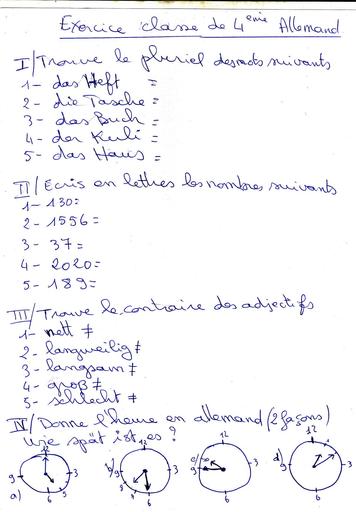 Exercice classe de 4eme Allemand
I/ Trouve le pluriel des mots suivants
1- das Heft =
2- die Tasche =
3- das Buch =
4- der Kuli =
5- das Haus =
II/ Ecris en lettres les nombres suivants
1- 130=
2- 1556=
3- 37=
4- 2020=
5- 189=
III/ Trouve le contraire des adjectifs
1- nett ≠
2- langweilig ≠
3- langsam ≠
4- groß ≠
5- schlecht ≠
IV/ Donne l'heure en allemand (2 façons)
Wie spät ist es ?
a) 12 3 5 6 9
b) 12 3 6 9
c) 12 3 6
d) 12 3 6 9